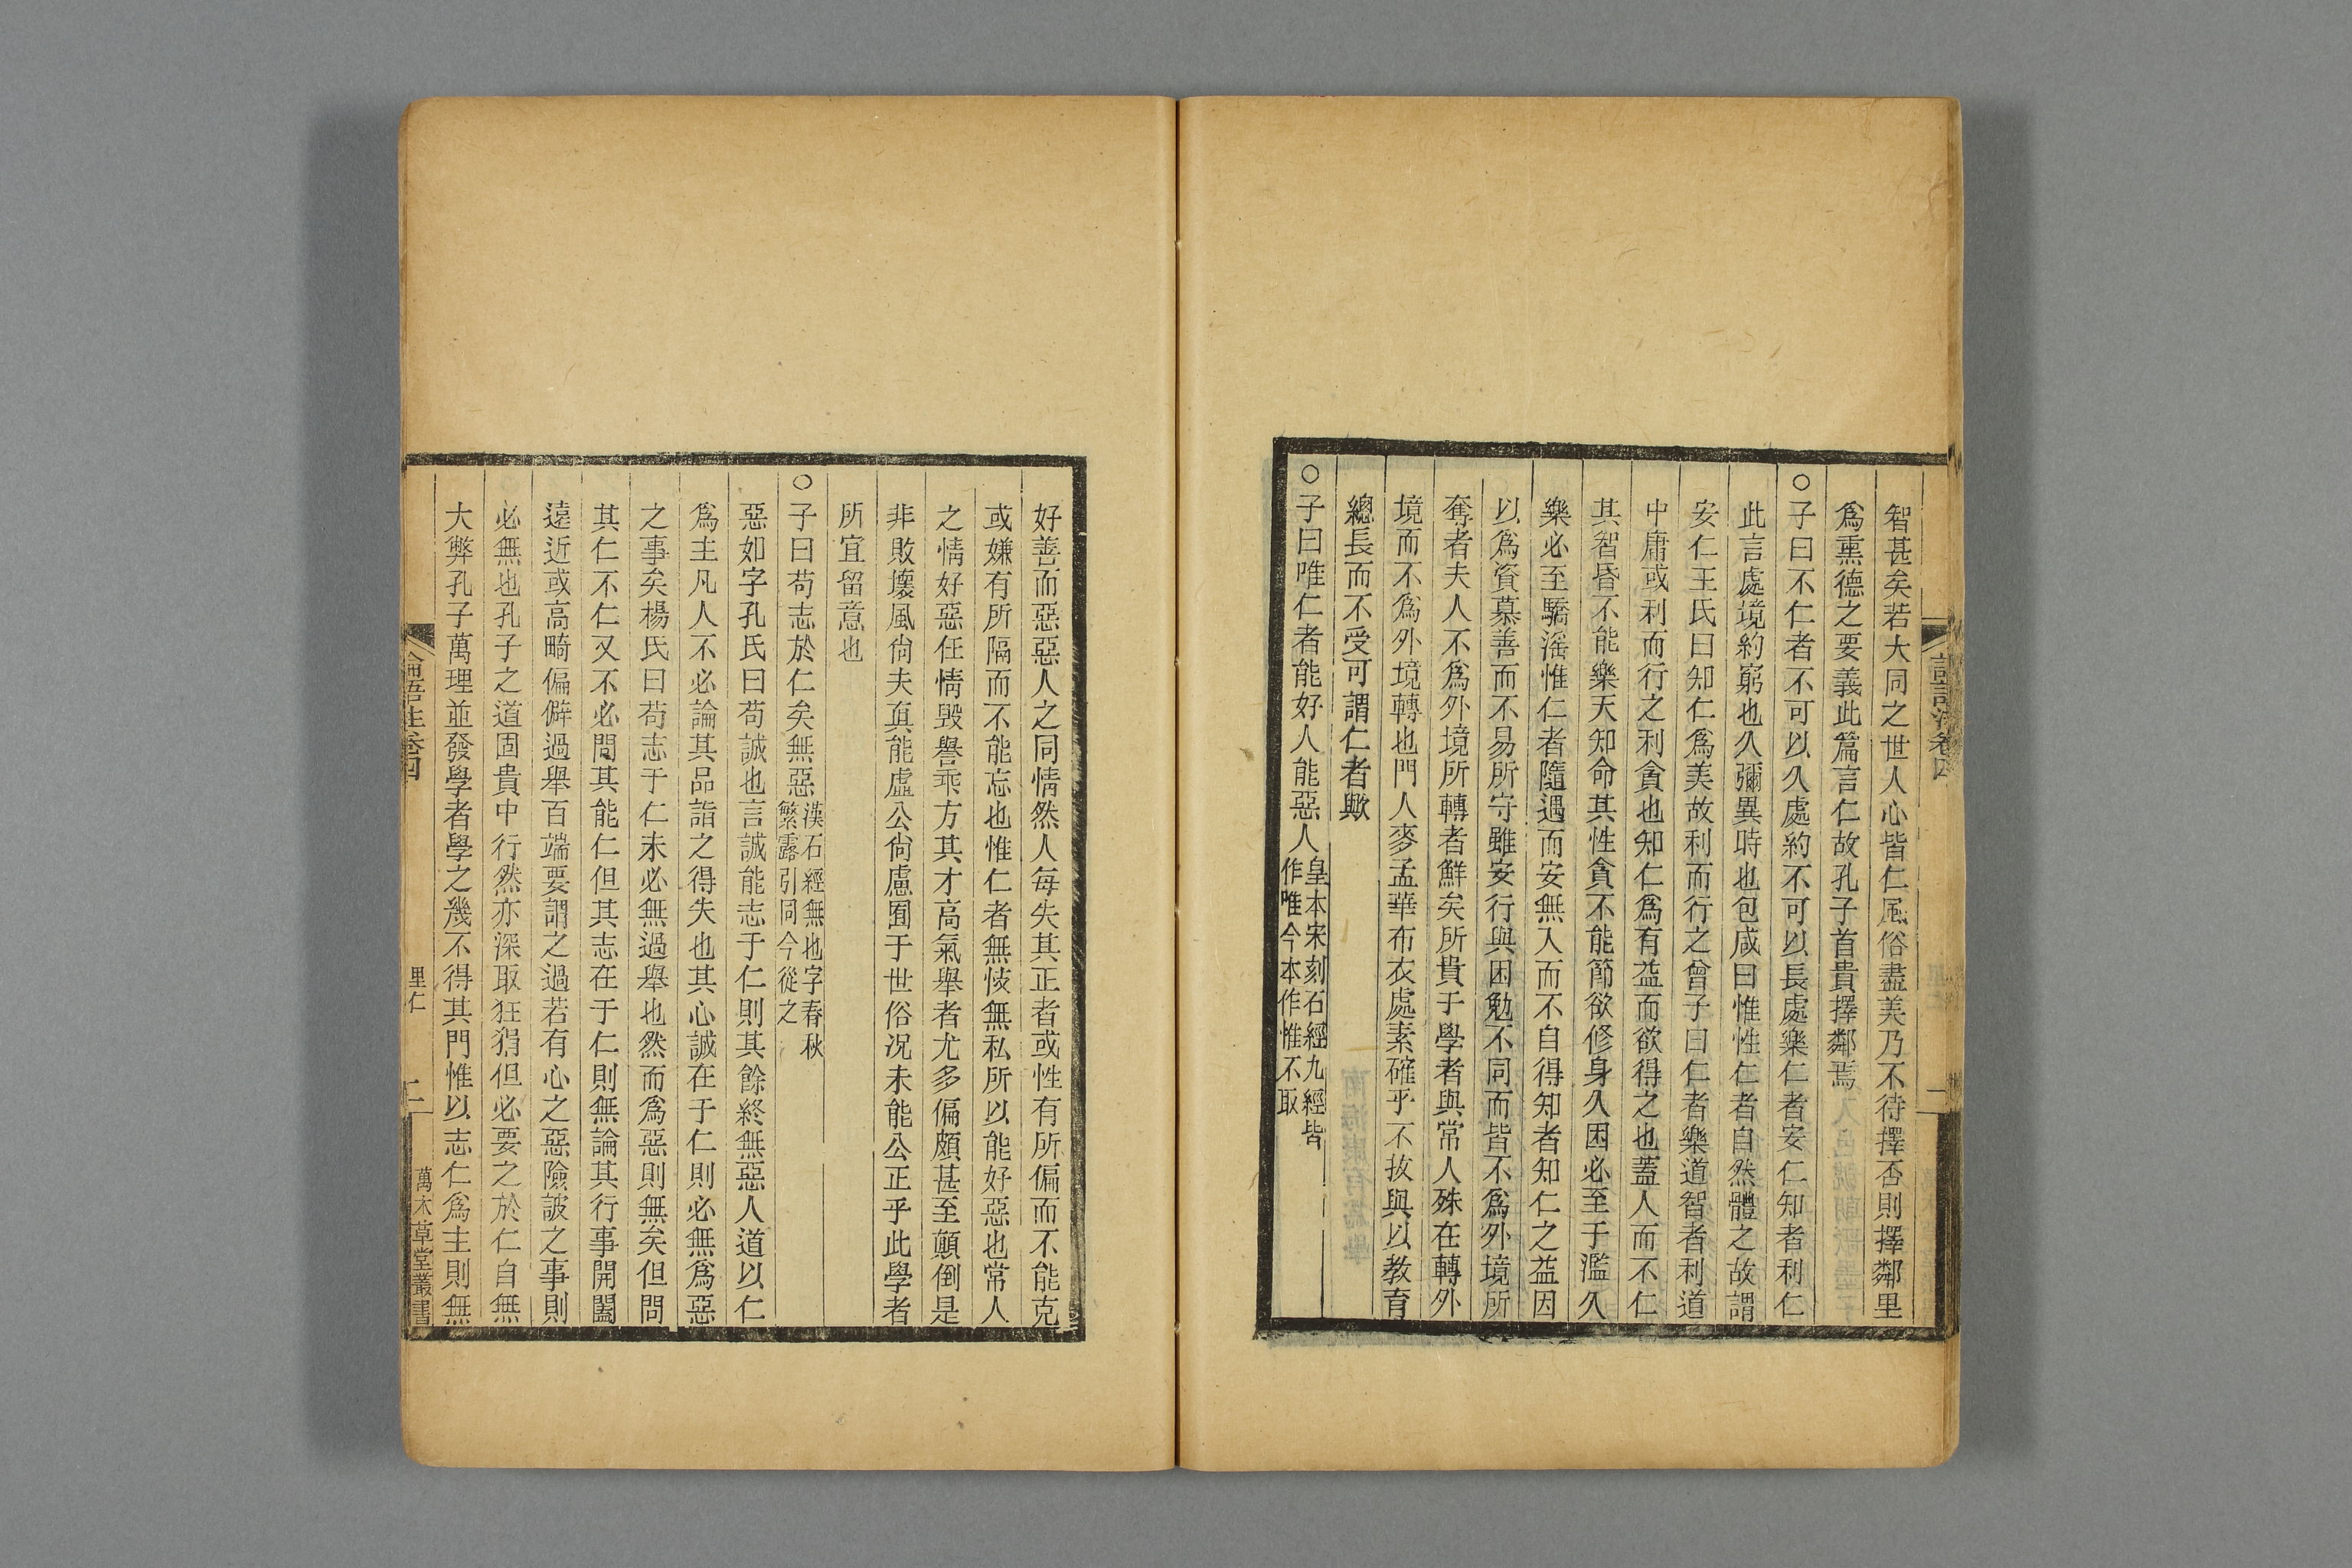 智甚矣若大同之世人心皆仁風俗盡美乃不待擇否則擇鄰里
爲熏德之要義此篇言仁故孔子首貴擇鄰焉
○子曰不仁者不可以久處約不可以長處樂仁者安仁知者利仁
此言處境約窮也久彌異時也包咸曰惟性仁者自然體之故謂
安仁王氏曰知仁爲美故利而行之曾子曰仁者樂道智者利道
中庸或利而行之利貪也知仁爲有益而欲得之也蓋人而不仁
其智昏不能樂天知命其性貪不能節欲修身久困必至于濫久
樂必至驕淫惟仁者隨遇而安無入而不自得知者知仁之益因
以爲資慕善而不易所守雖安行與困勉不同而皆不爲外境所
奪者夫人不爲外境所轉者鮮矣所貴于學者與常人殊在轉外
境而不爲外境轉也門人麥孟華布衣處素確乎不拔與以教育
總長而不受可謂仁者歟
○子曰唯仁者能好人能惡人皇本宋刻石經九經皆
作唯今本作惟不取
好善而惡惡人之同情然人每失其正者或性有所偏而不能克
或嫌有所隔而不能忘也惟仁者無忮無私所以能好惡也常人
之情好惡任情毀譽乖方其才高氣舉者尤多偏頗甚至顛倒是
非敗壞風尙夫眞能虛公尙慮囿于世俗况未能公正乎此學者
所宜留意也
○子曰苟志於仁矣無惡漢石經無也字春秋
繁露引同今從之
惡如字孔氏曰苟誠也言誠能志于仁則其餘終無惡人道以仁
爲主凡人不必論其品詣之得失也其心誠在于仁則必無爲惡
之事矣楊氏曰苟志于仁未必無過舉也然而爲惡則無矣但問
其仁不仁又不必問其能仁但其志在于仁則無論其行事開闔
遠近或高畸偏僻過舉百端要謂之過若有心之惡險詖之事則
必無也孔子之道固貴中行然亦深取狂狷但必要之於仁自無
大弊孔子萬理並發學者學之幾不得其門惟以志仁爲主則無
論語注卷四
里仁
二
萬木草堂叢書